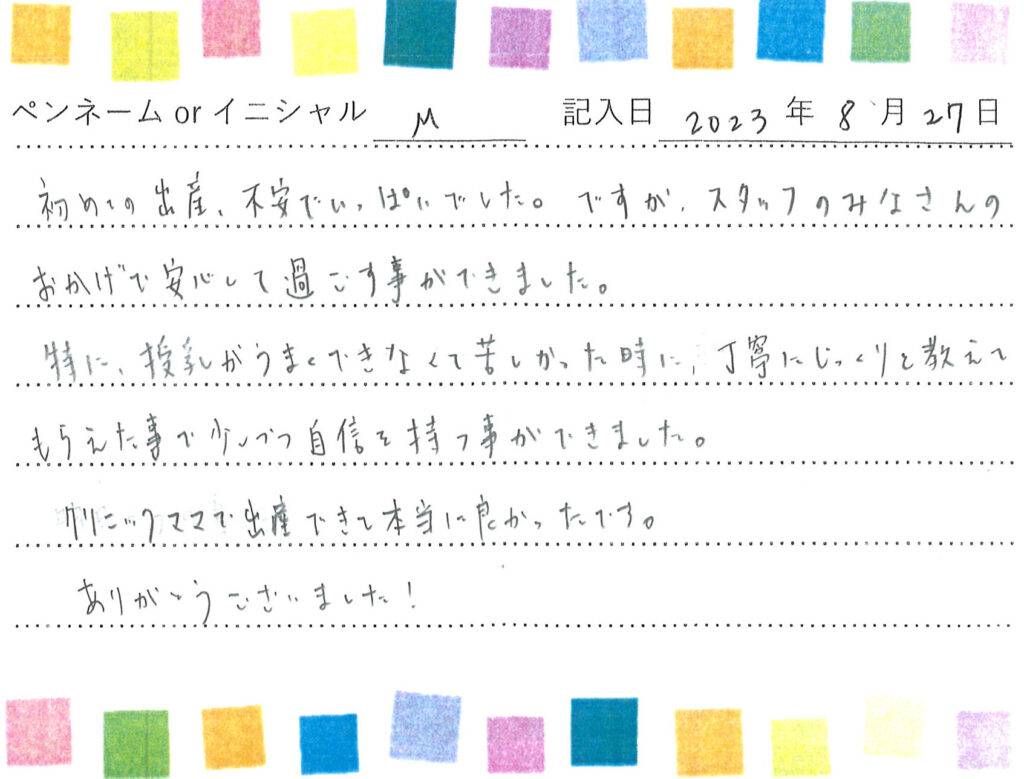 ペンネーム or イニシャル M 記入日 2023 年 8 月 27 日
初めての出産、不安でいっぱいでした。ですが、スタッフのみなさんの
おかげで安心して過ごす事ができました。
特に、授乳がうまくできなくて苦しかった時に、丁寧にじっくりと教えて
もらえた事で少しづつ自信を持つ事ができました。
クリニックママで出産できて本当に良かったです。
ありがとうございました!